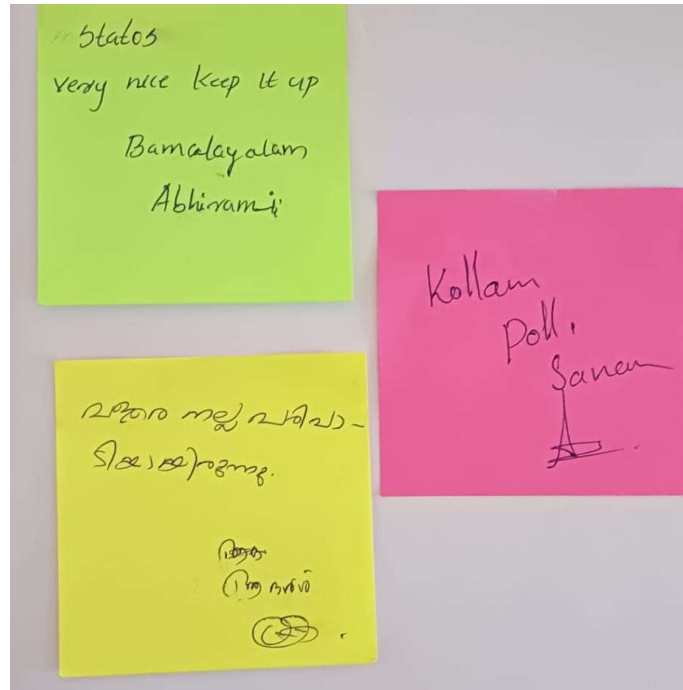 Statos
very nice keep it up
Bamalayalam
Abhirami
Kollam
Poli.
Sanam
വളരെ നല്ല പരിപാ-
ടിയായിരുന്നു.
ആദർശ്